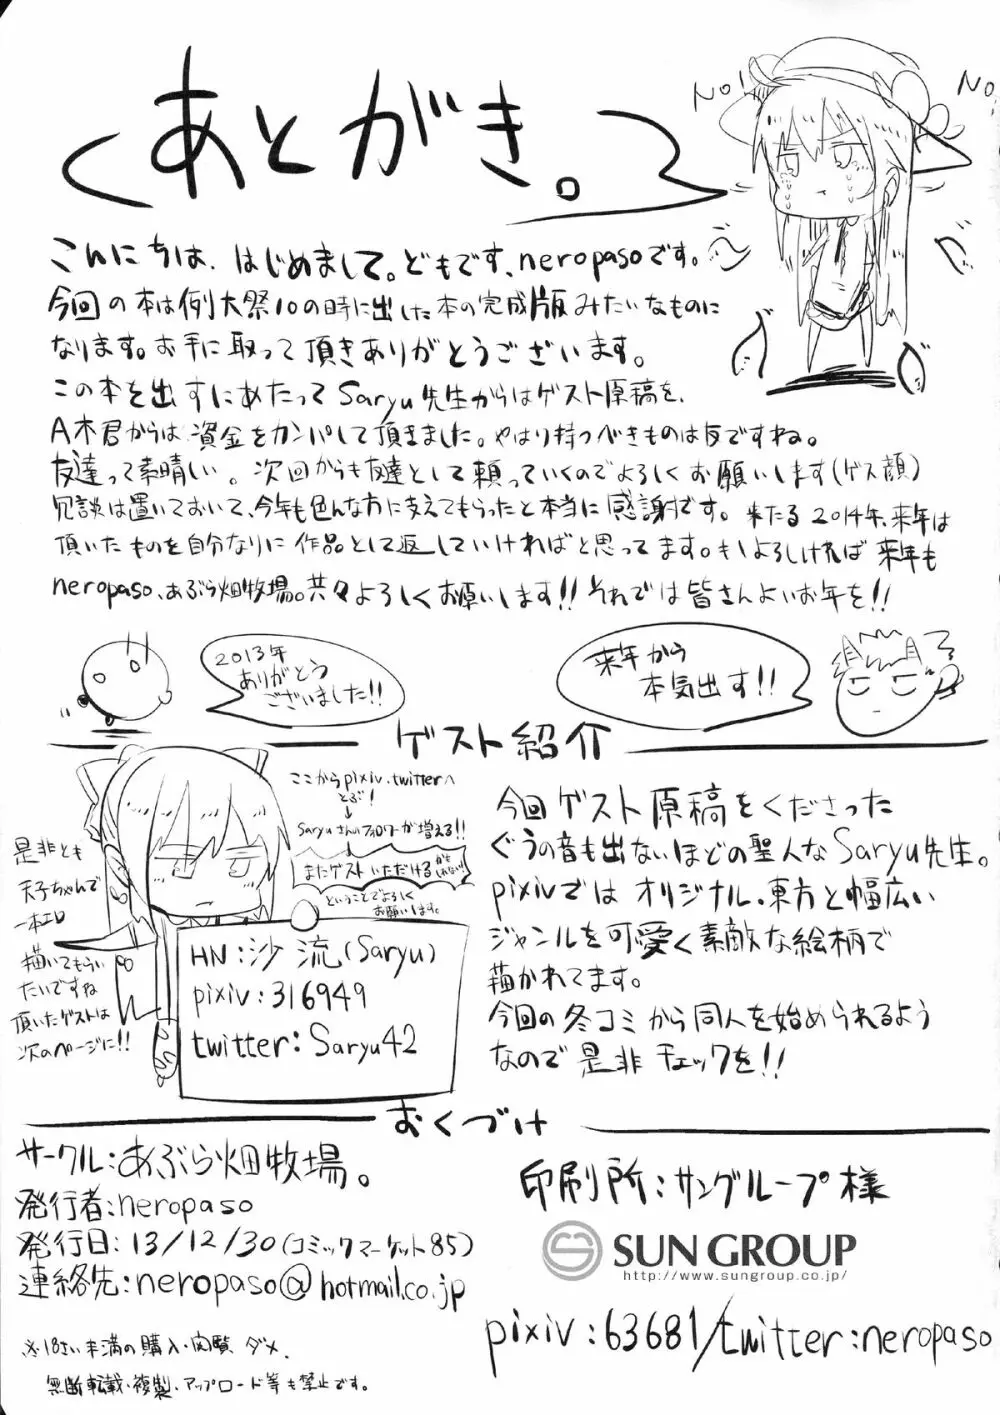 あとがき。
No!
No!
こんにちは、はじめまして。どもです、neropasoです。
今回の本は例大祭10の時に出した本の完成版みたいなものに
なります。お手に取って頂きありがとうございます。
この本を出すにあたってSaryu先生からはゲスト原稿を、
A木君からは資金をカンパして頂きました。やはり持つべきものは友ですね。
友達って素晴しい。次回からも友達として頼っていくのでよろしくお願いします(ゲス顔)
冗談は置いておいて、今年も色んな方に支えてもらったと本当に感謝です。来たる2014年、来年は
頂いたものを自分なりに作品として返していければと思ってます。もしよろしければ来年も
neropaso、あぶら畑牧場。共々よろしくお願いします!!それでは皆さんよいお年を!!
2013年
ありがとう
ございました!!
来年から
本気出す!!
ゲスト紹介
ここからpixiv、twitterへ
とぶ!
↓
Saryuさんのフォロワーが増える!!
↓
またゲストいただけるかもしれない!
ということでよろしく
お願いします。
是非とも
天子ちゃんで
一本エロ
描いてもらい
たいですね
頂いたゲストは
次のページに!!
HN:沙流(Saryu)
pixiv:316949
twitter:Saryu42
今回ゲスト原稿をくださった
ぐうの音も出ないほどの聖人なSaryu先生。
pixivではオリジナル、東方と幅広い
ジャンルを可愛く素敵な絵柄で
描かれてます。
今回の冬コミから同人を始められるよう
なので是非チェックを!!
おくづけ
サークル:あぶら畑牧場。
発行者:neropaso
発行日:13/12/30(コミックマーケット85)
連絡先:neropaso@hotmail.co.jp
※18さい未満の購入・閲覧ダメ、
無断転載・複製・アップロード等も禁止です。
印刷所:サングループ様
SUN GROUP
http://www.sungroup.co.jp/
pixiv:63681/twitter:neropaso